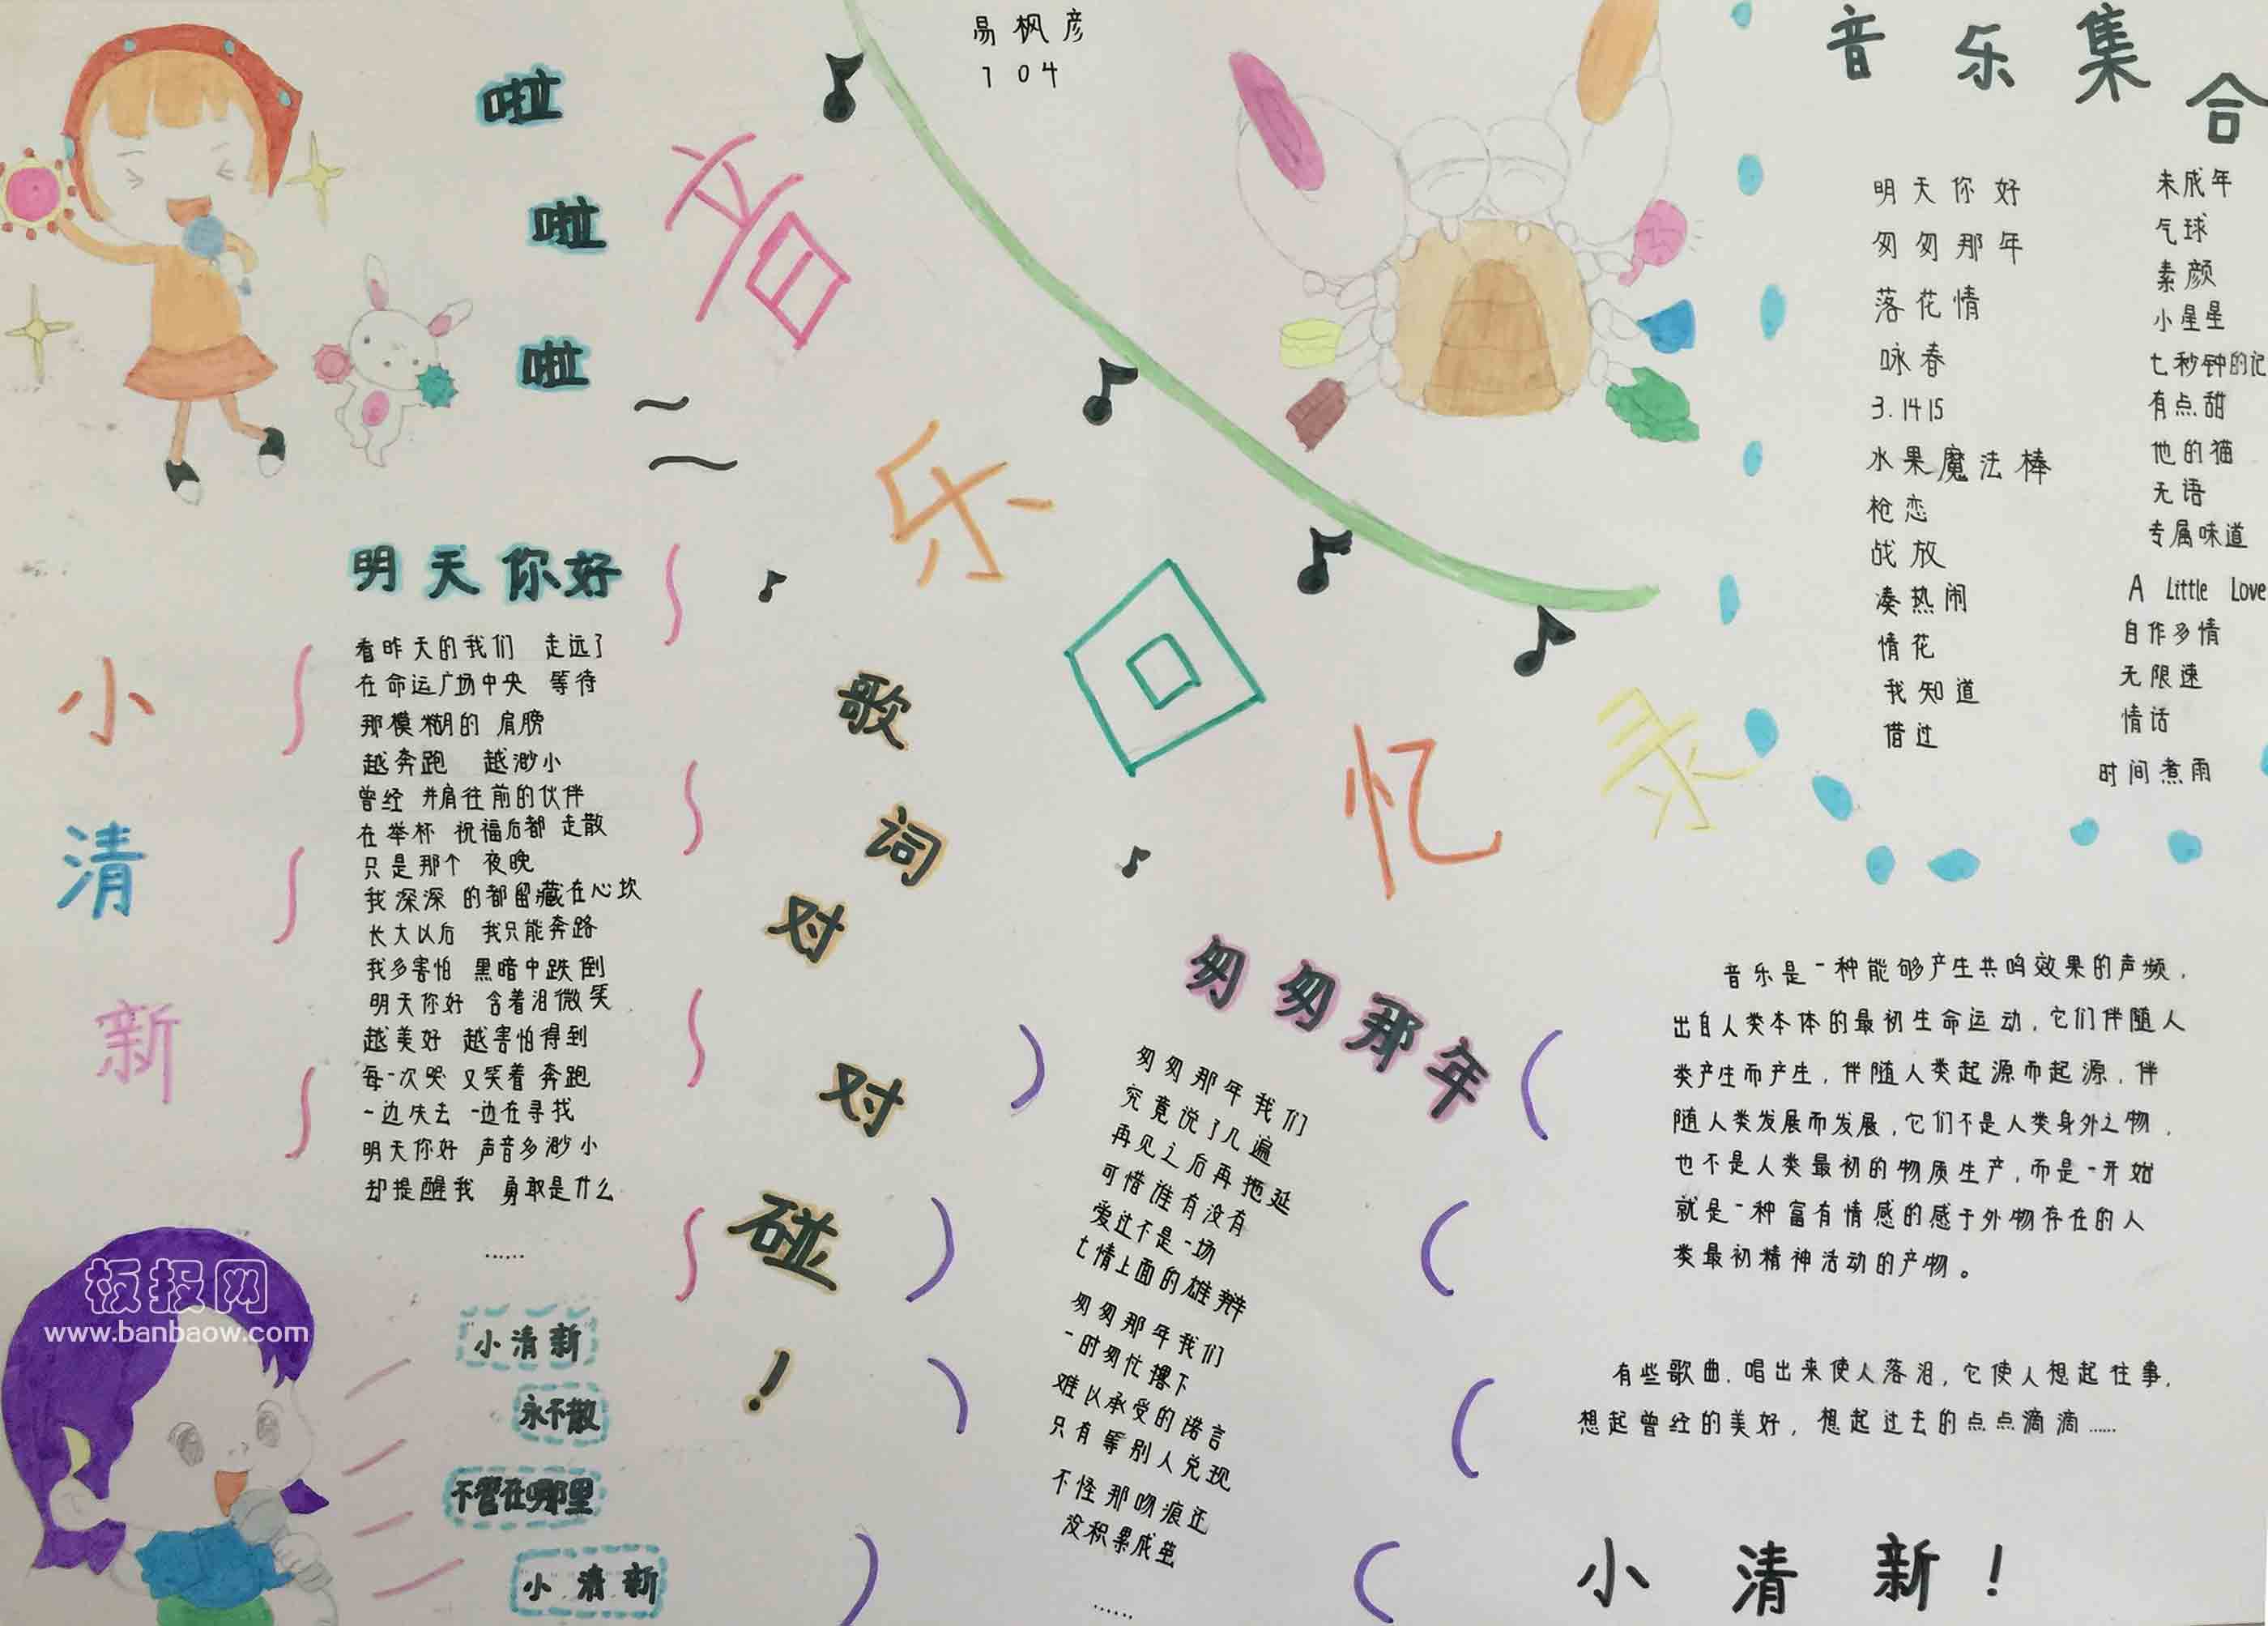 易枫彦
104
啦
啦
啦
音乐回忆录
明天你好
看昨天的我们 走远了
在命运广场中央 等待
那模糊的 肩膀
越奔跑 越渺小
曾经 并肩往前的伙伴
在举杯 祝福后都 走散
只是那个 夜晚
我深深 的都留藏在心坎
长大以后 我只能奔路
我多害怕 黑暗中跌倒
明天你好 含着泪微笑
越美好 越害怕得到
每一次哭 又笑着奔跑
一边失去 一边在寻找
明天你好 声音多渺小
却提醒我 勇敢是什么
……
小清新
板报网
www.banbaow.com
小清新
永不散
不管在哪里
小清新
歌词对对碰！
匆匆那年
匆匆那年我们
究竟说了几遍
再见之后再拖延
可惜谁有没有
爱过不是一场
七情上面的雄辩
匆匆那年我们
一时匆忙撂下
难以承受的诺言
只有等别人兑现
不怪那吻痕还
没积累成茧
……
音乐集合
明天你好
匆匆那年
落花情
咏春
3.1415
水果魔法棒
枪恋
战放
凑热闹
情花
我知道
借过
未成年
气球
素颜
小星星
七秒钟的记
有点甜
他的猫
无语
专属味道
A Little Love
自作多情
无限速
情话
时间煮雨
音乐是一种能够产生共鸣效果的声频，
出自人类本体的最初生命运动，它们伴随人
类产生而产生，伴随人类起源而起源，伴
随人类发展而发展，它们不是人类身外之物，
也不是人类最初的物质生产，而是一开始
就是一种富有情感的感于外物存在的人
类最初精神活动的产物。
有些歌曲，唱出来使人落泪，它使人想起往事，
想起曾经的美好，想起过去的点点滴滴……
小清新！